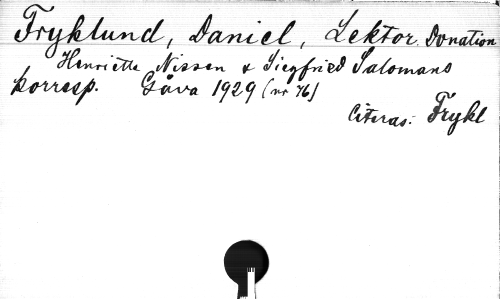 Fryklund, Daniel, Lektor. Donation
Henriette Nissen & Siegfried Salomans
korresp. Gåva 1929 (nr 76)
Citeras: Frykl